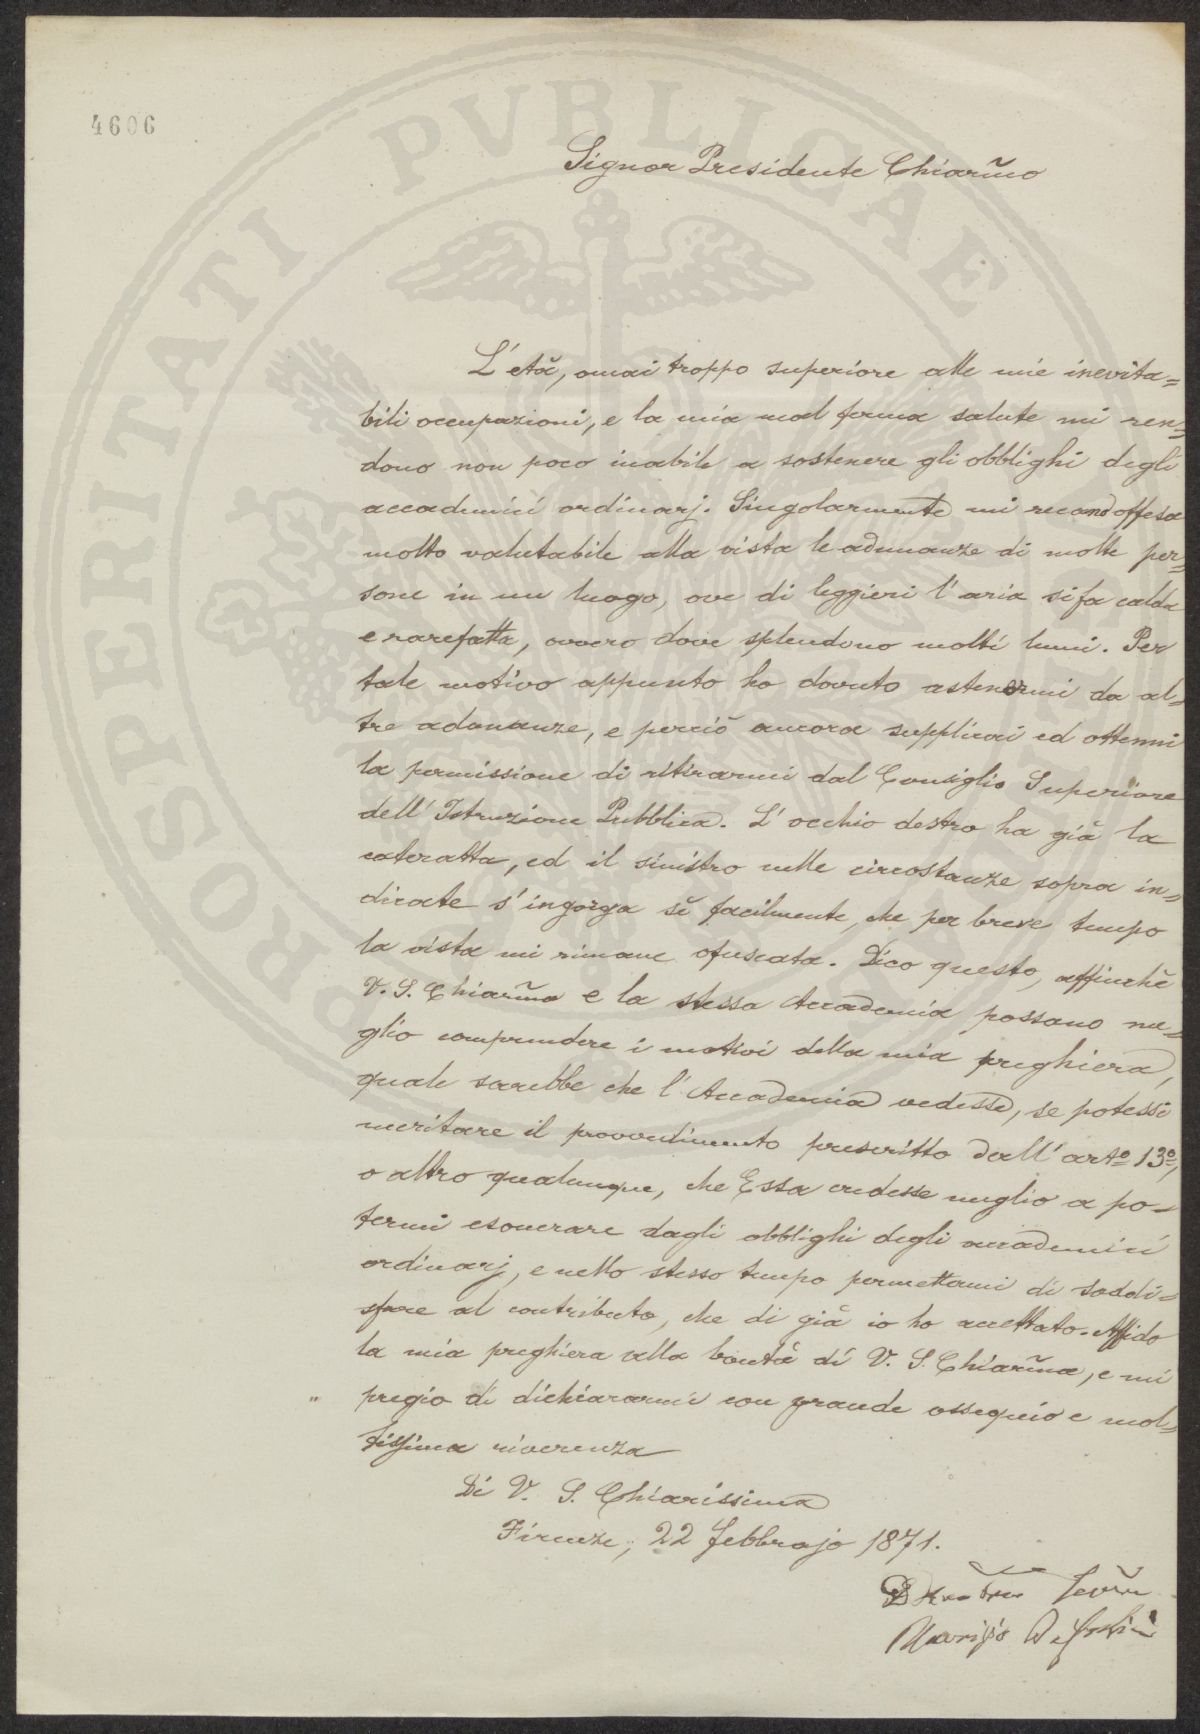 4606
PROSPERITATI PVBLICAE
Signor Presidente Chiarm̃o
L'età, omai troppo superiore alle mie inevita=
bili occupazioni, e la mia mal ferma salute mi ren=
dono non poco inabile a sostenere gli obblighi degli
accademici ordinarj. Singolarmente mi recano offesa
molto valutabile alla vista le adunanze di molte per=
sone in un luogo, ove di leggieri l'aria si fa calda
e rarefatta, ovvero dove splendono molti lumi. Per
tale motivo appunto ho dovuto astenermi da al=
tre adunanze, e perciò ancora supplicai ed ottenni
la permissione di ritirarmi dal Consiglio Superiore
dell'Istruzione Pubblica. L'occhio destro ha già la
cateratta, ed il sinistro nelle circostanze sopra in=
dicate s'ingorga sì facilmente, che per breve tempo
la vista mi rimane ofuscata. Dico questo, affinchè
V. S. Chiarm̃a e la stessa Accademia possano me=
glio comprendere i motivi della mia preghiera,
quale sarebbe che l'Accademia vedesse, se potessi
meritare il provvedimento prescritto dall'artº 13º,
o altro qualunque, che Essa credesse meglio a po=
termi esonerare dagli obblighi degli accademici
ordinarj, e nello stesso tempo permettermi di soddi=
sfare al contributo, che di già io ho accettato. Affido
la mia preghiera alla bontà di V. S. Chiarm̃a, e mi
pregio di dichiararmi con grande ossequio e mol=
tissima riverenza
Di V. S. Chiarissima
Firenze, 22 febbrajo 1871.
Maurizio Bufalini